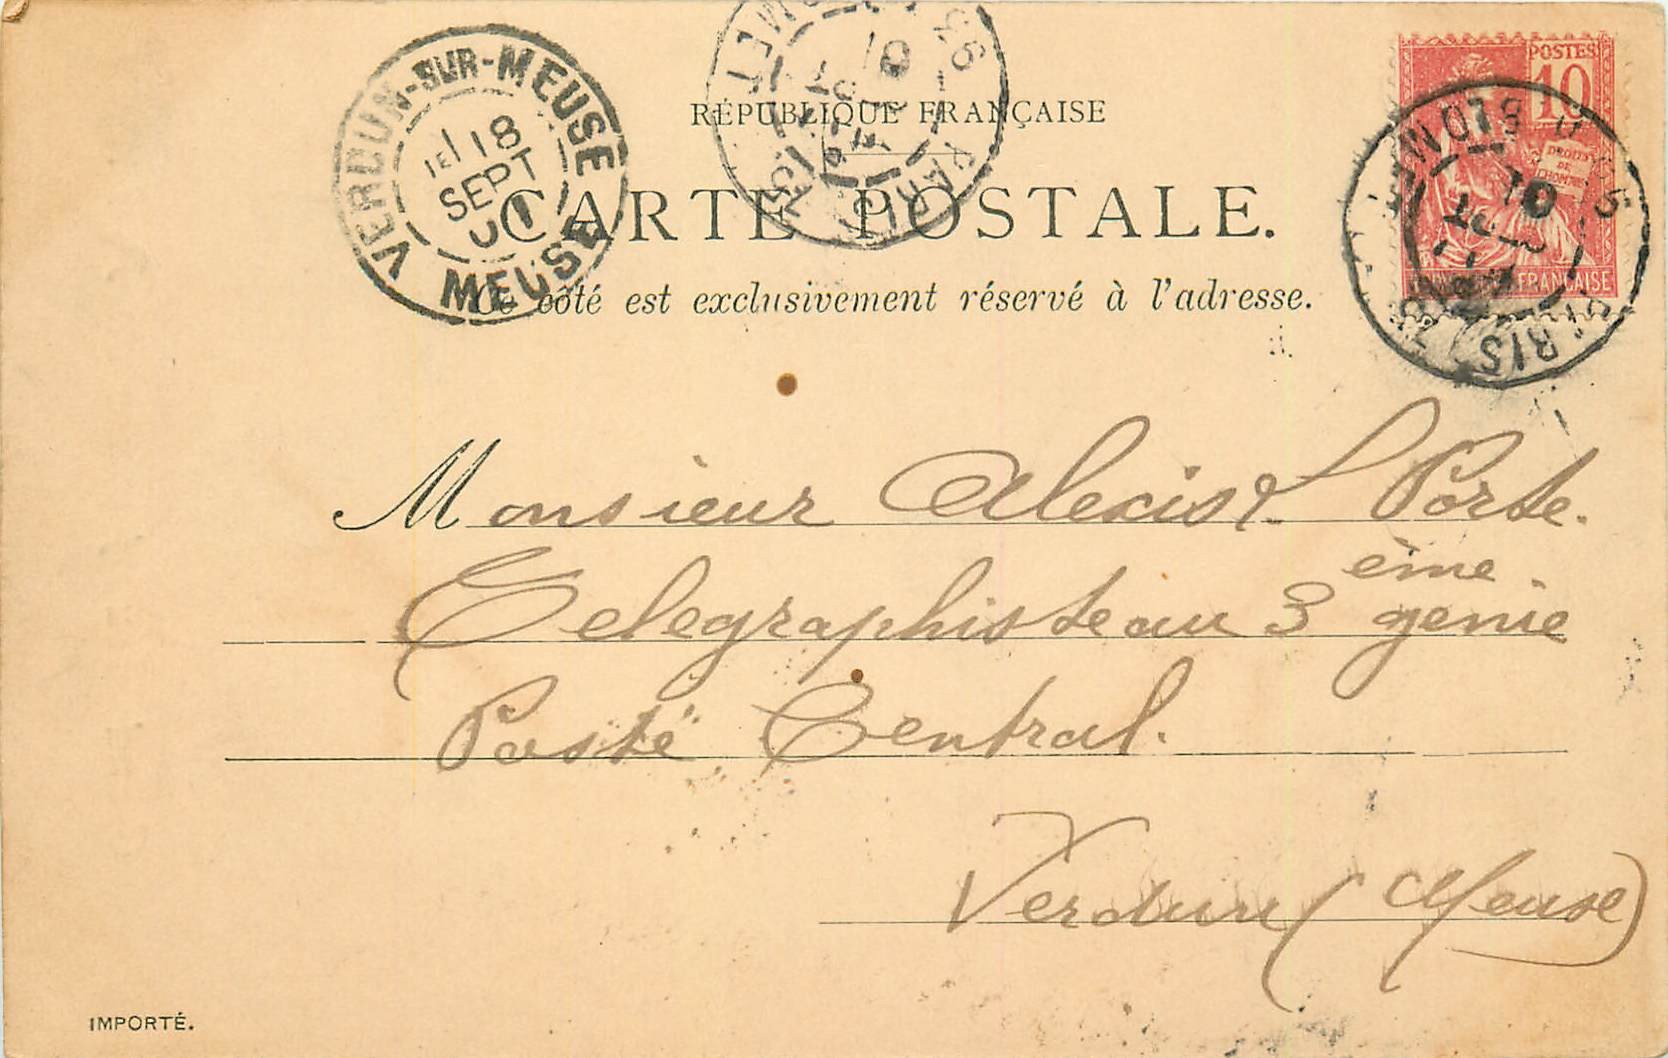 RÉPUBLIQUE FRANÇAISE
CARTE POSTALE.
Ce côté est exclusivement réservé à l'adresse.
VERDUN-SUR-MEUSE
18
SEPT
01
MEUSE
PARIS
01
POSTES
10
DROITS
DE
L'HOMME
FRANÇAISE
PARIS
01
Monsieur Alexis Porte.
Telegraphiste au 3 ème genie
Poste Central.
Verdun (Meuse)
IMPORTÉ.